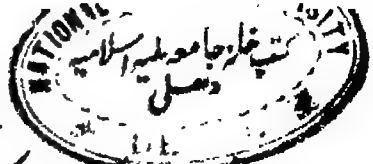 NATIONAL
کتب خانہ جامعہ ملیہ اسلامیہ
دہلی